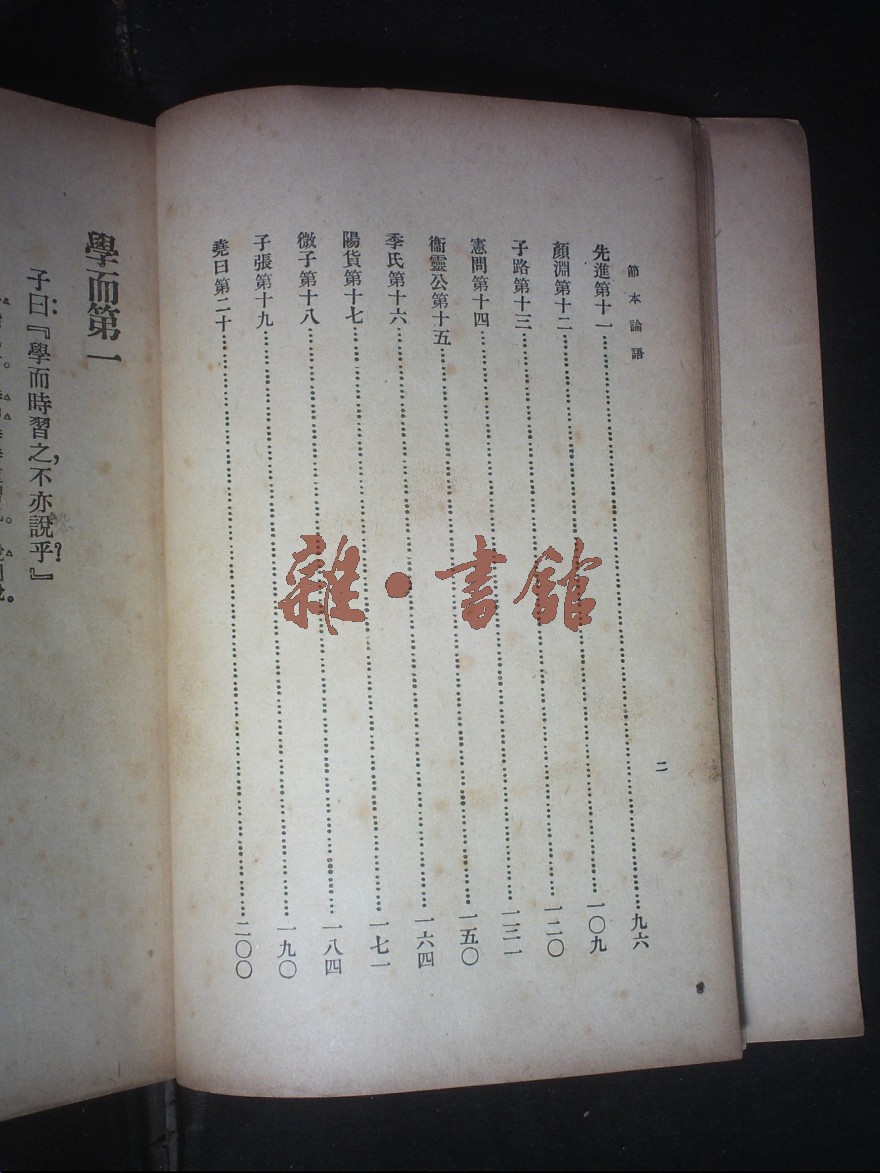 節本論語
二
先進第十一……九六
顏淵第十二……一〇九
子路第十三……一二〇
憲問第十四……一三一
衞靈公第十五……一五〇
季氏第十六……一六四
陽貨第十七……一七一
微子第十八……一八四
子張第十九……一九〇
堯曰第二十……二〇〇
雜·書館
學而第一
子曰：『學而時習之，不亦說乎？』